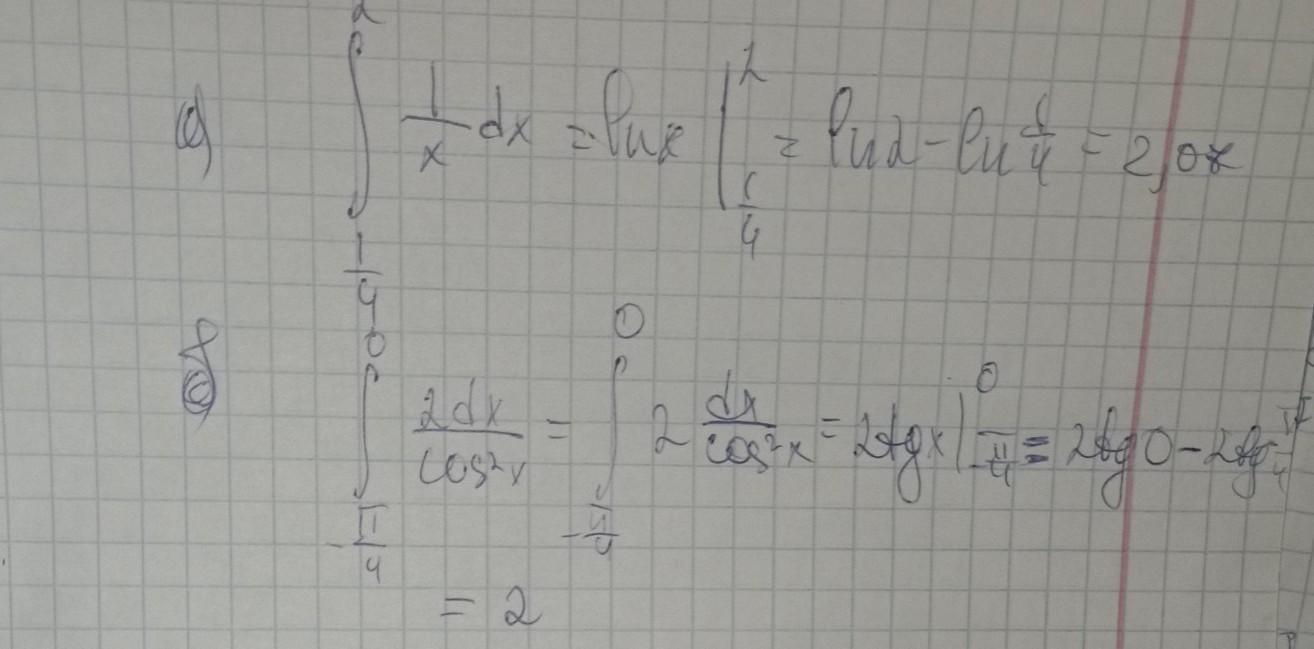 а) ∫_{1/4}^{2} 1/x dx = ln x |_{1/4}^{2} = ln 2 - ln 1/4 = 2,08
б) ∫_{-π/4}^{0} 2dx/cos²x = ∫_{-π/4}^{0} 2 dx/cos²x = 2tgx |_{-π/4}^{0} = 2tg 0 - 2tg π/4
= 2